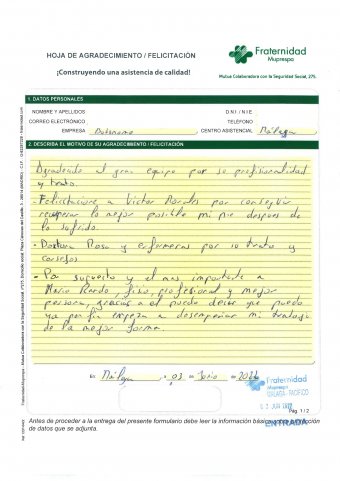 HOJA DE AGRADECIMIENTO / FELICITACIÓN
¡Construyendo una asistencia de calidad!
Fraternidad
Muprespa
Mutua Colaboradora con la Seguridad Social, 275.
1. DATOS PERSONALES
NOMBRE Y APELLIDOS
D.N.I / N.I.E.
CORREO ELECTRÓNICO
TELÉFONO
EMPRESA Autonomo , CENTRO ASISTENCIAL Málaga
2. DESCRIBA EL MOTIVO DE SU AGRADECIMIENTO / FELICITACIÓN
Agradecido al gran equipo por su profesionalidad
y trato.
- Felicitaciones a Victor por conseguir
recuperar lo mejor posible mi pie despues de
lo sufrido.
- Doctora Rosa y enfermeras por su trato y
consejos
- Por supuesto y el mas importante a
Mario Pardo fisio, profesional y mejor
persona, gracias a el puedo decir que puedo
ya por fin empezar a desempeñar mi trabajo
de la mejor forma.
En Málaga , a 03 de Junio de 2022
Fraternidad
Muprespa
MÁLAGA-PACÍFICO
03 JUN 2022
ENTRADA
Pág. 1 / 2
Antes de proceder a la entrega del presente formulario debe leer la información básica sobre protección
de datos que se adjunta.